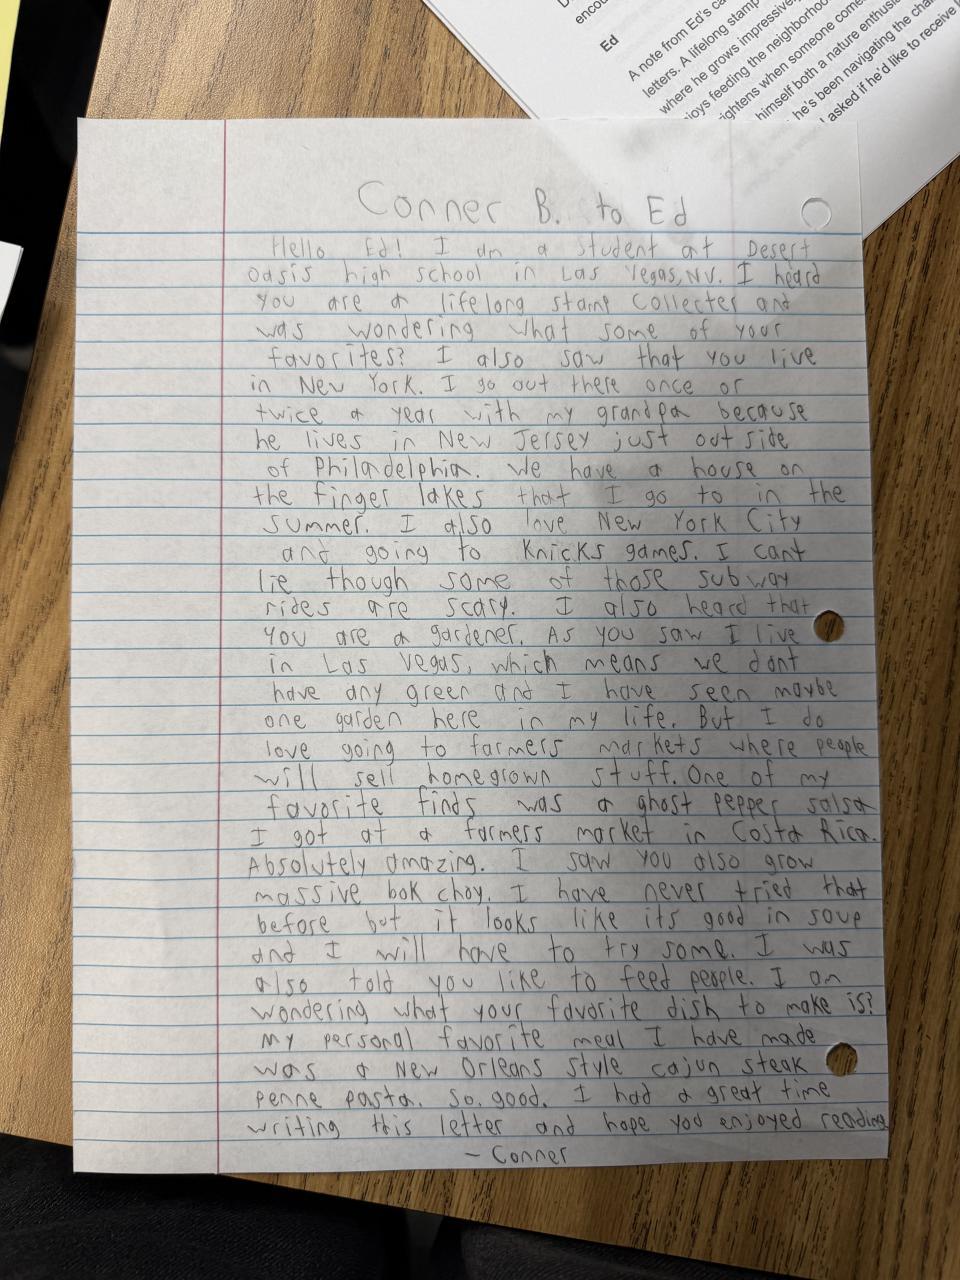 encou
Ed
A note from Ed's ca
letters. A lifelong stamp
where he grows impressively
joys feeding the neighborhoo
ightens when someone come
himself both a nature enthusi
he's been navigating the cha
asked if he'd like to receive
Conner B. to Ed
Hello Ed! I am a student at Desert
Oasis high school in Las Vegas, NV. I heard
you are a lifelong stamp Collecter and
was wondering what some of your
favorites? I also saw that you live
in New York. I go out there once or
twice a year with my grandpa because
he lives in New Jersey just outside
of Philadelphia. We have a house on
the finger lakes that I go to in the
summer. I also love New York City
and going to Knicks games. I cant
lie though some of those subway
rides are scary. I also heard that
you are a gardener. As you saw I live
in Las Vegas, which means we dont
have any green and I have seen maybe
one garden here in my life. But I do
love going to farmers markets where people
will sell homegrown stuff. One of my
favorite finds was a ghost pepper salsa
I got at a farmers market in Costa Rica.
Absolutely amazing. I saw you also grow
massive bok choy. I have never tried that
before but it looks like its good in soup
and I will have to try some. I was
also told you like to feed people. I am
wondering what your favorite dish to make is?
My personal favorite meal I have made
was a New Orleans style cajun steak
penne pasta. So. good. I had a great time
writing this letter and hope you enjoyed reading
- Conner